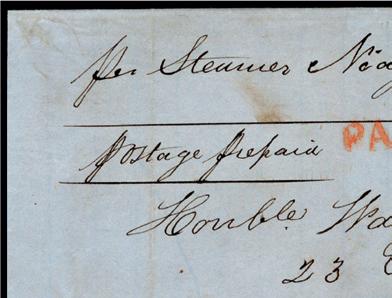 per Steamer
PA
postage prepaid
Honble.
23